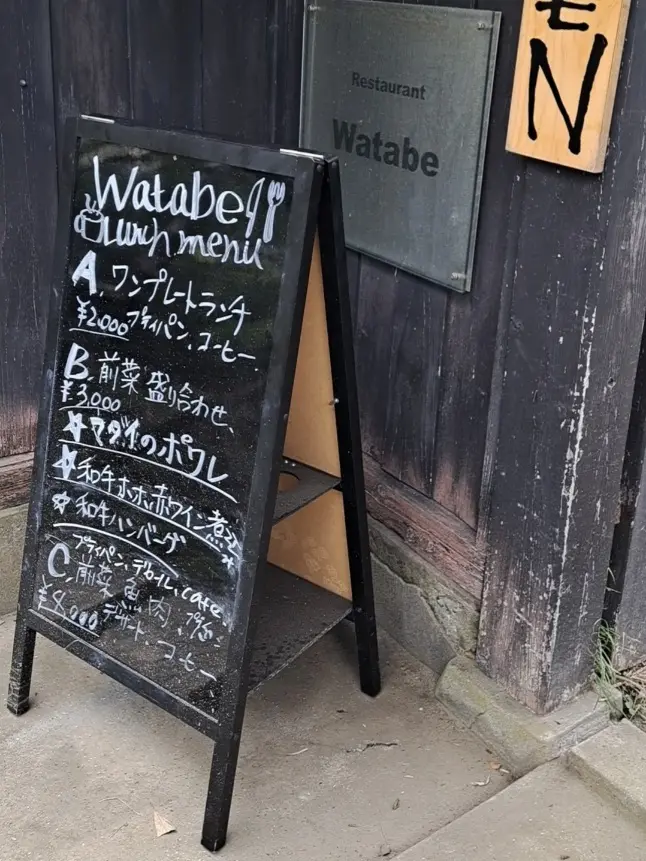 Watabe
Lunch menu
A. ワンプレートランチ
¥2,000 プティパン、コーヒー
B. 前菜盛り合わせ、
¥3,000
☆マダイのポワレ
☆和牛ホホ赤ワイン煮込
☆和牛ハンバーグ
プティパン、デセール、cafe
C. 前菜 魚 肉
¥8,000 デザート、コーヒー
Restaurant
Watabe
モ
N